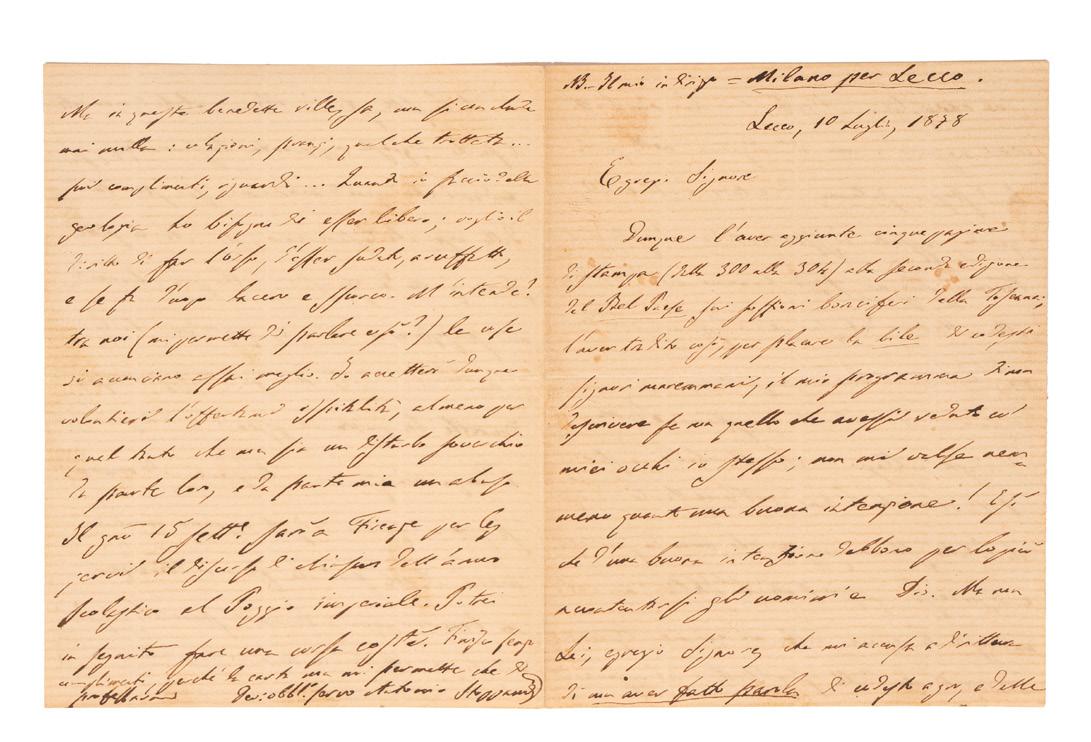 NB. Il mio indirizzo = Milano per Lecco.
Lecco, 10 Luglio, 1878
Egregio Signore
Dunque l'aver aggiunte cinque pagine
di stampa (dalla 300 alla 304) alla seconda edizione
del Bel Paese sui soffioni boraciferi della Toscana;
l'aver tradito così, per placare la bile di codesti
signori maremmani, il mio programma di non
descrivere se non quello che avessi veduto co'
miei occhi io stesso; non mi valse nem=
meno quanto una buona intenzione! E sì
che d'una buona intenzione debbono per lo più
accontentarsi gli uomini e Dio. Ma non
Lei, egregio Signore, che mi accusa addirittura
di non aver fatto parola di codesti e delle
Ma in queste benedette ville, sa, non si conclude
mai nulla: colazioni, pranzi, qualche trottata...
poi complimenti, riguardi... Quando io faccio della
geologia ho bisogno di esser libero; voglio il
diritto di far l'orso, d'esser sudato, arruffato,
e se fa d'uopo lacero e sporco. M'intende?
tra noi (mi permette di parlare così?) le cose
si acconciano assai meglio. Io accetterò dunque
volentieri l'offertami ospitalità, almeno per
quel tanto che non sia un disturbo soverchio
da parte loro, e da parte mia un abuso.
Il gno 15 sett.e sarò a Firenze per
il discorso di chiusura dell'anno
scolastico al Poggio imperiale. Potrei
in seguito fare una corsa costà. Finisco senza
complimenti, perché la carta non mi permette che di
professarmi Dev: obbl: servo Antonio Stoppani